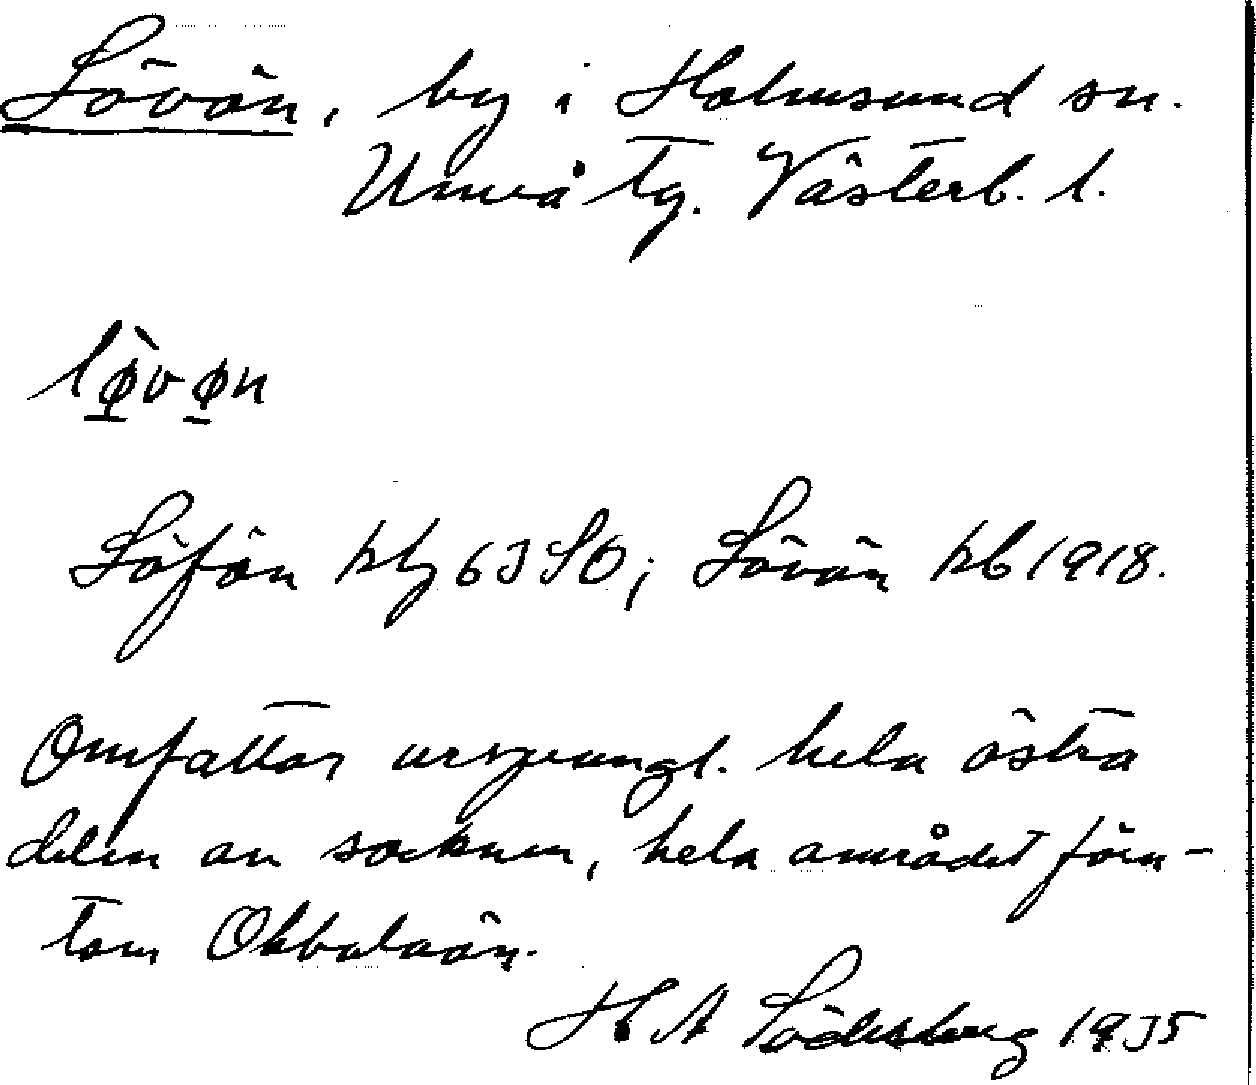 Lövön, by i Holmsund sn.
Umeå tg. Västerb. l.
lø̠̀vø̠n
Löfön kbg 63 SO; Lövön kb 1918.
Omfattar ursprungl. hela östra
delen av socknen, hela området föru-
tom Obbolaön.
H A Söderberg 1935